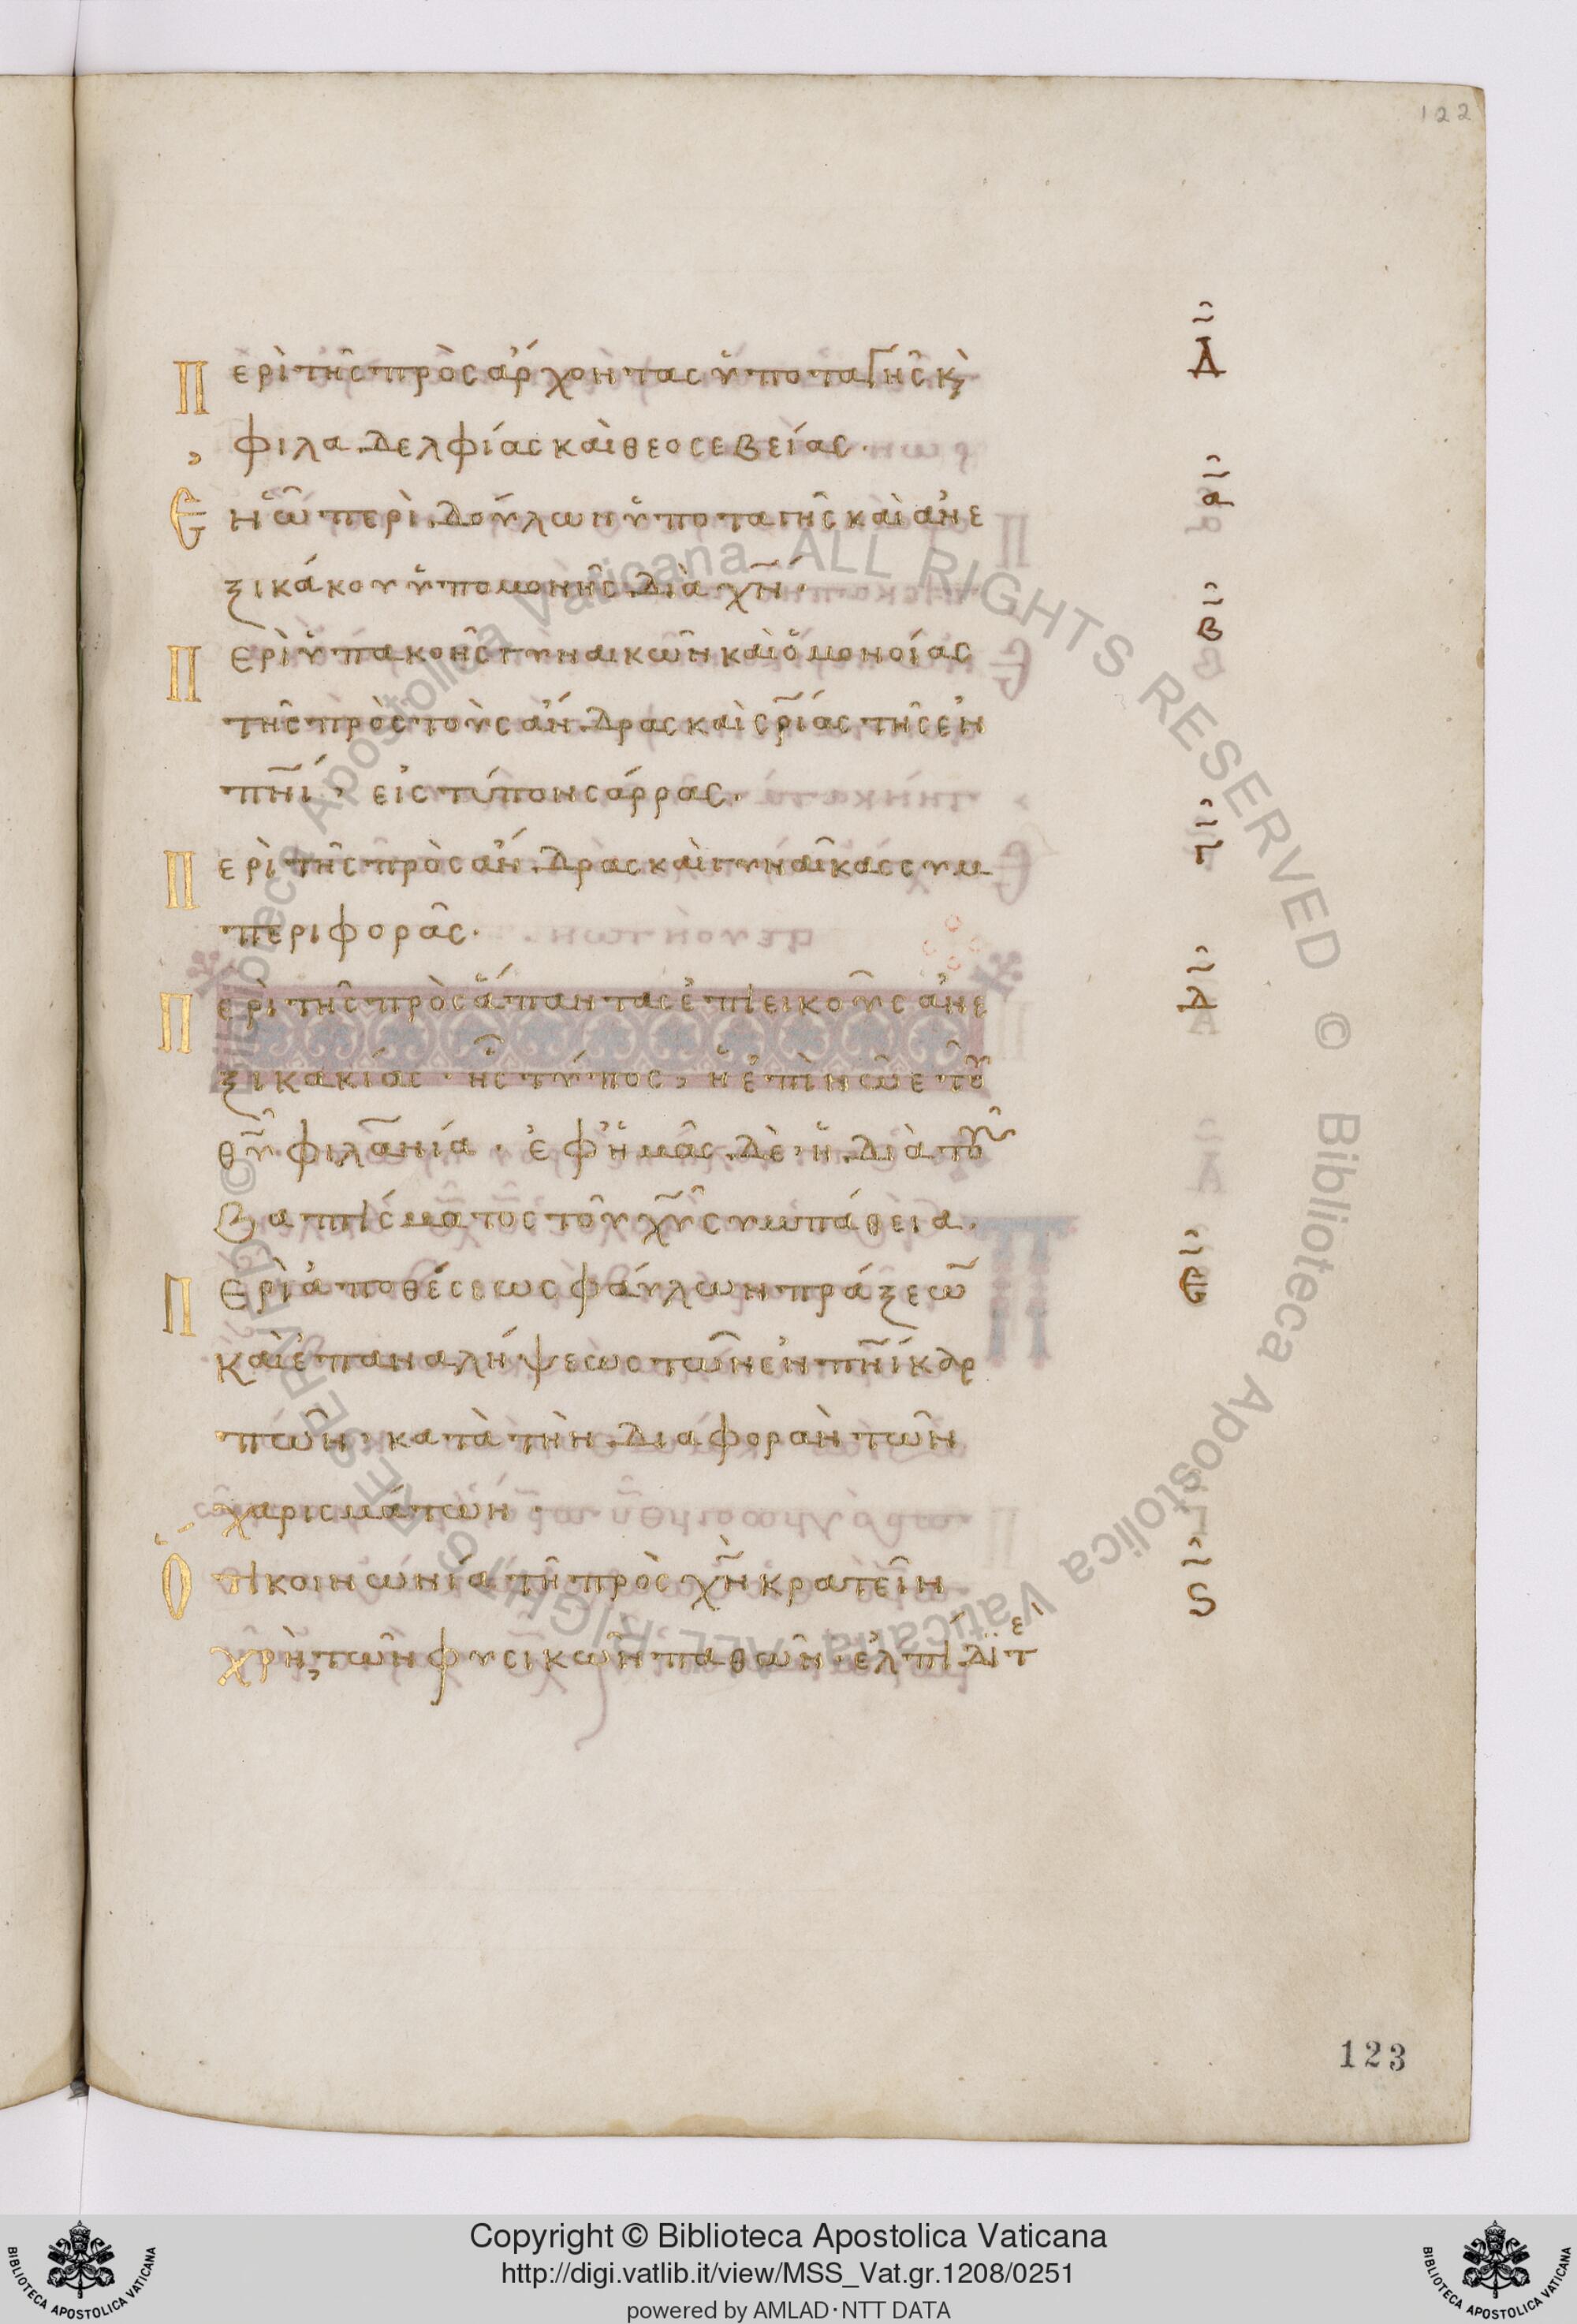 122
Περὶ τῆς πρὸς ἄρχοντας ὑποταγῆς κ̀ Δ̅
φιλαδελφίας καὶ θεοσεβείας.
Ἐν ὧ περὶ δούλων ὑποταγῆς καὶ ἀνε α̅
ξικάκου ὑπομονῆς διὰ χ̅ν̅.
Περὶ ὑπακοῆς γυναικῶν καὶ ὁμονοίας β̅
τῆς πρὸς τοὺς ἄνδρας καὶ σ̅ρ̅ίας τῆς ἐν
π̅ν̅ί, εἰς τύπον σάρρας.
Περὶ τῆς πρὸς ἄνδρας καὶ γυναῖκας συμ γ̅
περιφορᾶς.
Περὶ τῆς πρὸς ἅπαντας ἐπιεικοῦς ἀνε δ̅
ξικακίας. ἧς τύπος, ἡ ἐπὶ νῶε τοῦ
θ̅υ̅ φιλα̅νία. ἐφ' ἡμᾶς δὲ, ἡ διὰ τοῦ
βαπτίσματος τοῦ χ̅υ̅ συμπάθεια.
Περὶ ἀποθέσεως φαύλων πράξεω̅ ε̅
καὶ ἐπαναλήψεως τῶν ἐν π̅ν̅ί καρ
πῶν, κατὰ τὴν διαφορὰν τῶν
χαρισμάτων.
Ὅτι κοινωνία τῆ πρὸς χ̅ν̅ κρατεῖν ϛ̅
χρὴ, τῶν φυσικῶν παθῶν. ἐλπίδι τ
ε
123
© Biblioteca Apostolica Vaticana ALL RIGHTS RESERVED © Biblioteca Apostolica Vaticana ALL RIGHTS RESERVED
Copyright © Biblioteca Apostolica Vaticana
http://digi.vatlib.it/view/MSS_Vat.gr.1208/0251
powered by AMLAD·NTT DATA
BIBLIOTECA APOSTOLICA VATICANA
BIBLIOTECA APOSTOLICA VATICANA